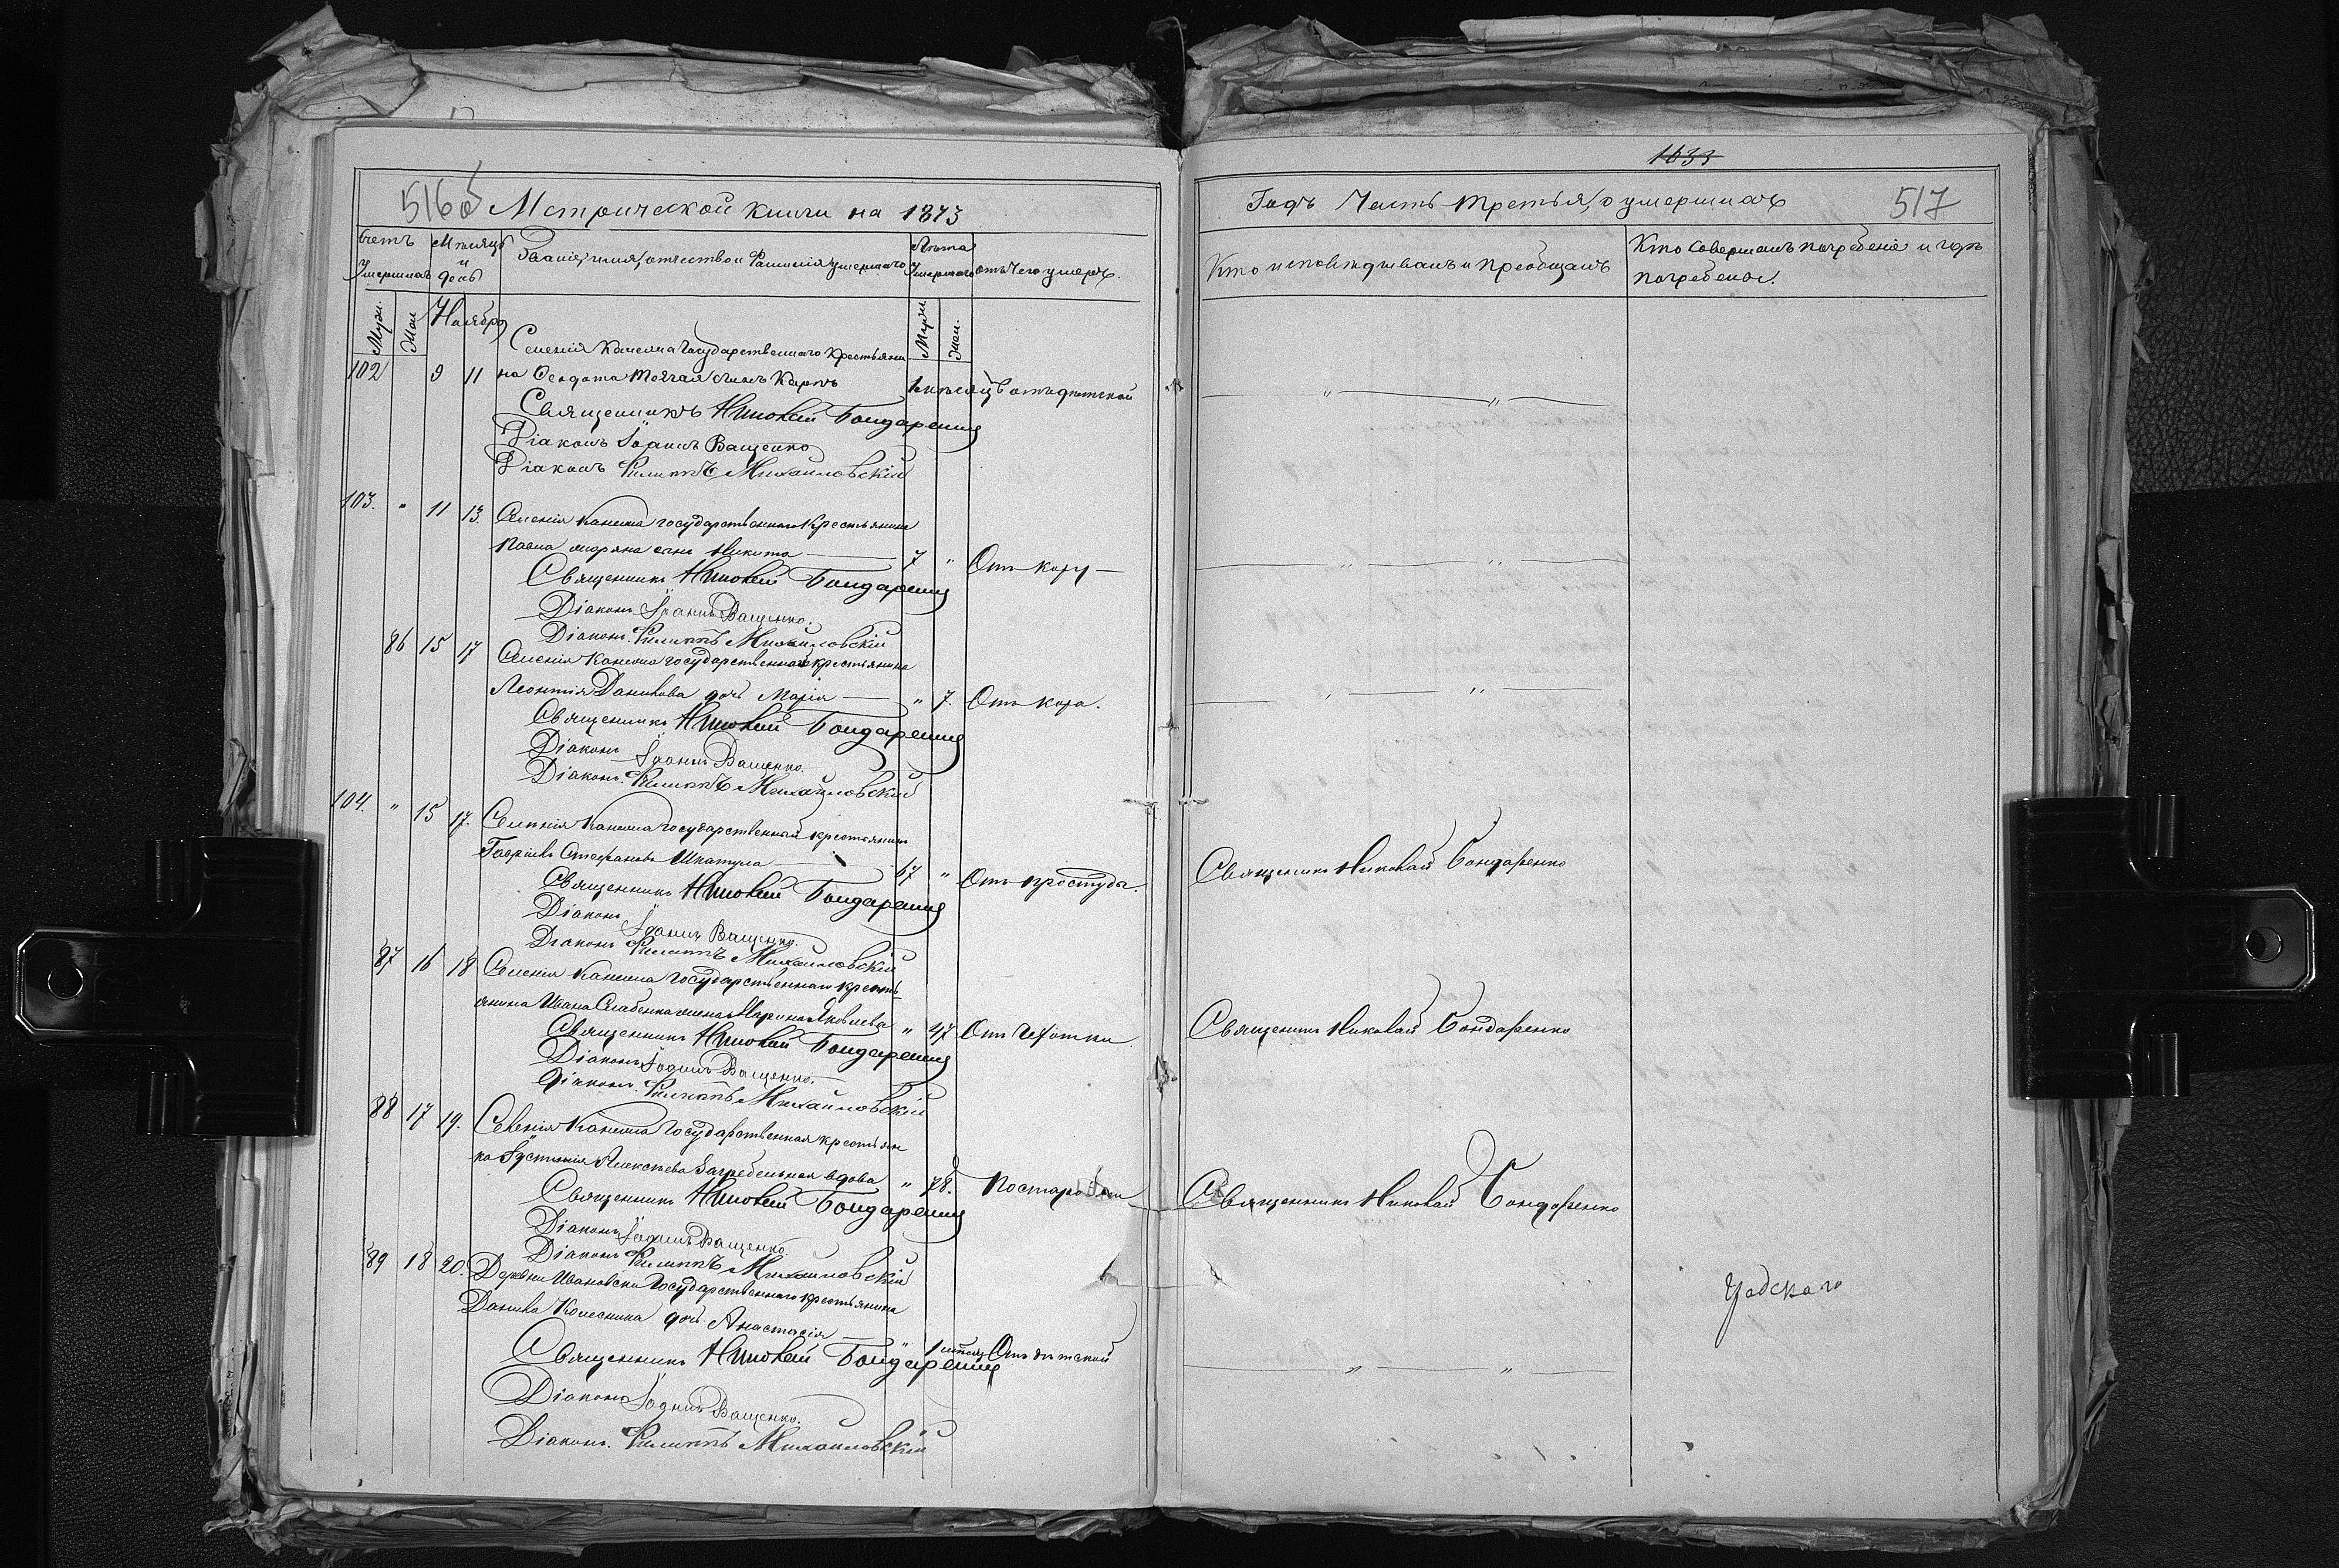 516об Метрической книги на 1873
Счетъ Умершихъ
Мѣсяцъ и день
Званіе, имя, отчество и Фамилія умершаго
Лѣта Умершаго
отъ Чего умеръ.
Муж. Жен. Ноябрь Муж. Жен.
Селенія Каменна Государственнаго Крестьяни
102 9 11 на сынъ Карпъ 1 мѣсяцъ отъ дѣтской
Священникъ Николай Бондаренко
Діаконъ Іоаннъ Ващенко
Діаконъ Филиппъ Михайловскій
103. " 11 13. Селенія Каменна государственнаго Крестьянина
Павла сынъ Никита 7 " Отъ кору
Священникъ Николай Бондаренко
Діаконъ Іоаннъ Ващенко.
Діаконъ Филиппъ Михайловскій
86 15 17 Селенія Каменна государственнаго крестьянина
Леонтія Данилова дочь Марія " 7. Отъ кора.
Священникъ Николай Бондаренко
Діаконъ Іоаннъ Ващенко.
Діаконъ Филиппъ Михайловскій
104. " 15 17. Селенія Каменна государственный крестьянинъ
Гавріилъ Стефановъ Шкатула 67 " Отъ простуды.
Священникъ Николай Бондаренко
Діаконъ Іоаннъ Ващенко.
Діаконъ Филиппъ Михайловскій
87 16 18 Селенія Каменна государственнаго кресть-
янина Ивана жена Марина Яковлева " 47 Отъ Чехотки.
Священникъ Николай Бондаренко
Діаконъ Іоаннъ Ващенко.
Діаконъ Филиппъ Михайловскій
88 17 19. Селенія Каменна Государственная крестьян
ка Іустинія Алексѣева Загребельная вдова " 78. По старости
Священникъ Николай Бондаренко
Діаконъ Іоаннъ Ващенко.
Діаконъ Филиппъ Михайловскій
89 18 20. Деревни Ивановки Государственнаго крестьянина
Данила Колесника дочь Анастасія " 1 мѣсяц Отъ дѣтской
Священникъ Николай Бондаренко
Діаконъ Іоаннъ Ващенко.
Діаконъ Филиппъ Михайловскій
1033
Годъ Часть третья, о умершихъ 517
Кто исповѣдывалъ и пріобщалъ
Кто совершалъ погребеніе и гдѣ
погребены.
Священникъ Николай Бондаренко
Священникъ Николай Бондаренко
Священникъ Николай Бондаренко